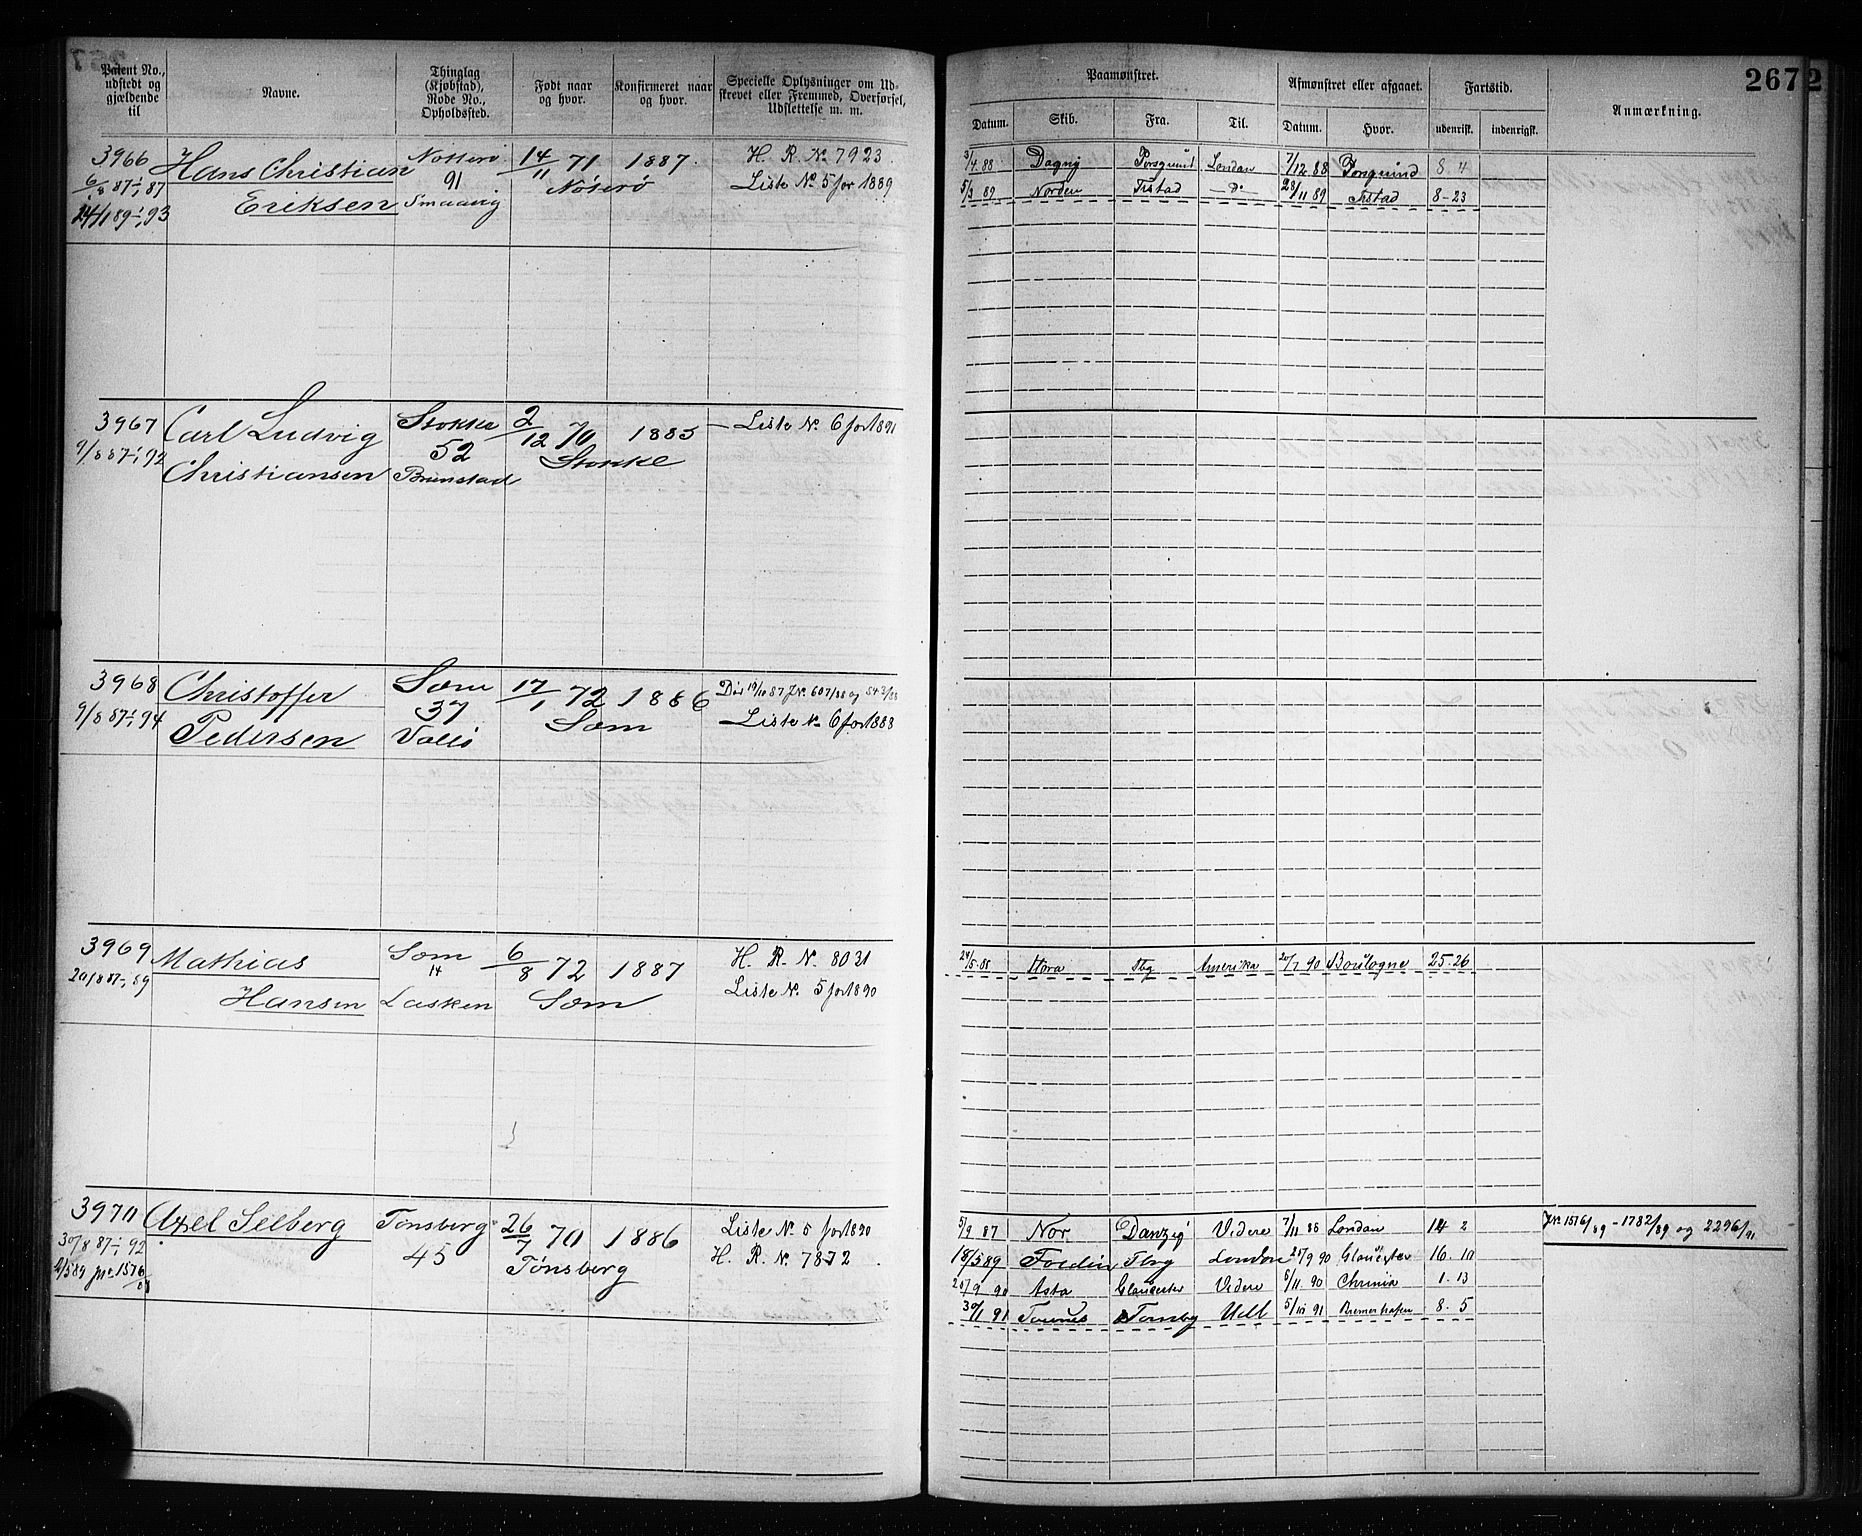 Patent No., udstedt og gjældende til
Navne.
Thinglag (Kjøbstad), Rode No., Opholdssted.
Født naar og hvor.
Konfirmeret naar og hvor.
Specielle Oplysninger om Udskrevet eller Fremmed, Overførsel, Udslettelse m. m.
Paamønstret.
Datum.
Skib.
Fra.
Til.
Afmønstret eller afgaaet.
Datum.
Hvor.
Fartstid.
udenrisk.
indenrigsk.
Anmærkning.
267
2
3966
6/8 87-1/1 87
24/1 89-1/1 93
Hans Christian
Eriksen
Nøtterø
91
Smaavig
14/11 71
Nøterø
1887.
H. R. No 7923.
Liste No 5 for 1889
3/4. 88 Dagny Porsgrund London 7/12 88 Porsgrund 8 4
5/3 89 Norden Frstad — Do 28/11 89 Frstad 8-23
3967
9/8 87-1/1 92
Carl Ludvig
Christiansen
Stokke
52
Brunstad
2/12 70
Stokke
1885
— Liste No. 6 for 1891
3968
9/8 87-1/1 94
Christoffer
Pedersen
Sæm
37
Vallø
17/1 72
Sæm
1886
Dis 19/10 87 J.No. 607/88 og 542/88
Liste No 6 for 1888
3969
20/8 87-1/1 89
Mathias
Hansen
Sæm
14
Lasken
6/8 72
Sæm
1887
H. R. No. 8031
Liste No. 5 for 1890
24/5. 88 Hera Tbg Amerika 20/7 90 Boulogne 25. 26
3970
30/8 87-1/1 92
Axel Selberg
Tønsberg
45
26/7 70
Tønsberg
1886
Liste No. 5 for 1890
H. R. No. 7872
5/9 87 Nor Danzig Videre 7/11 88 London 14 2
18/5 89 Tbrg London 25/9 90 Gloucester 16. 10
25/9 90 Asta Gloucester Videre 6/11. 90 Chrinia 1. 13
30/1 91 Tønsbg Udl 5/10 91 Bremerhafen 8. 5
J.No 1576/89 - 1782/89 og 2296/91